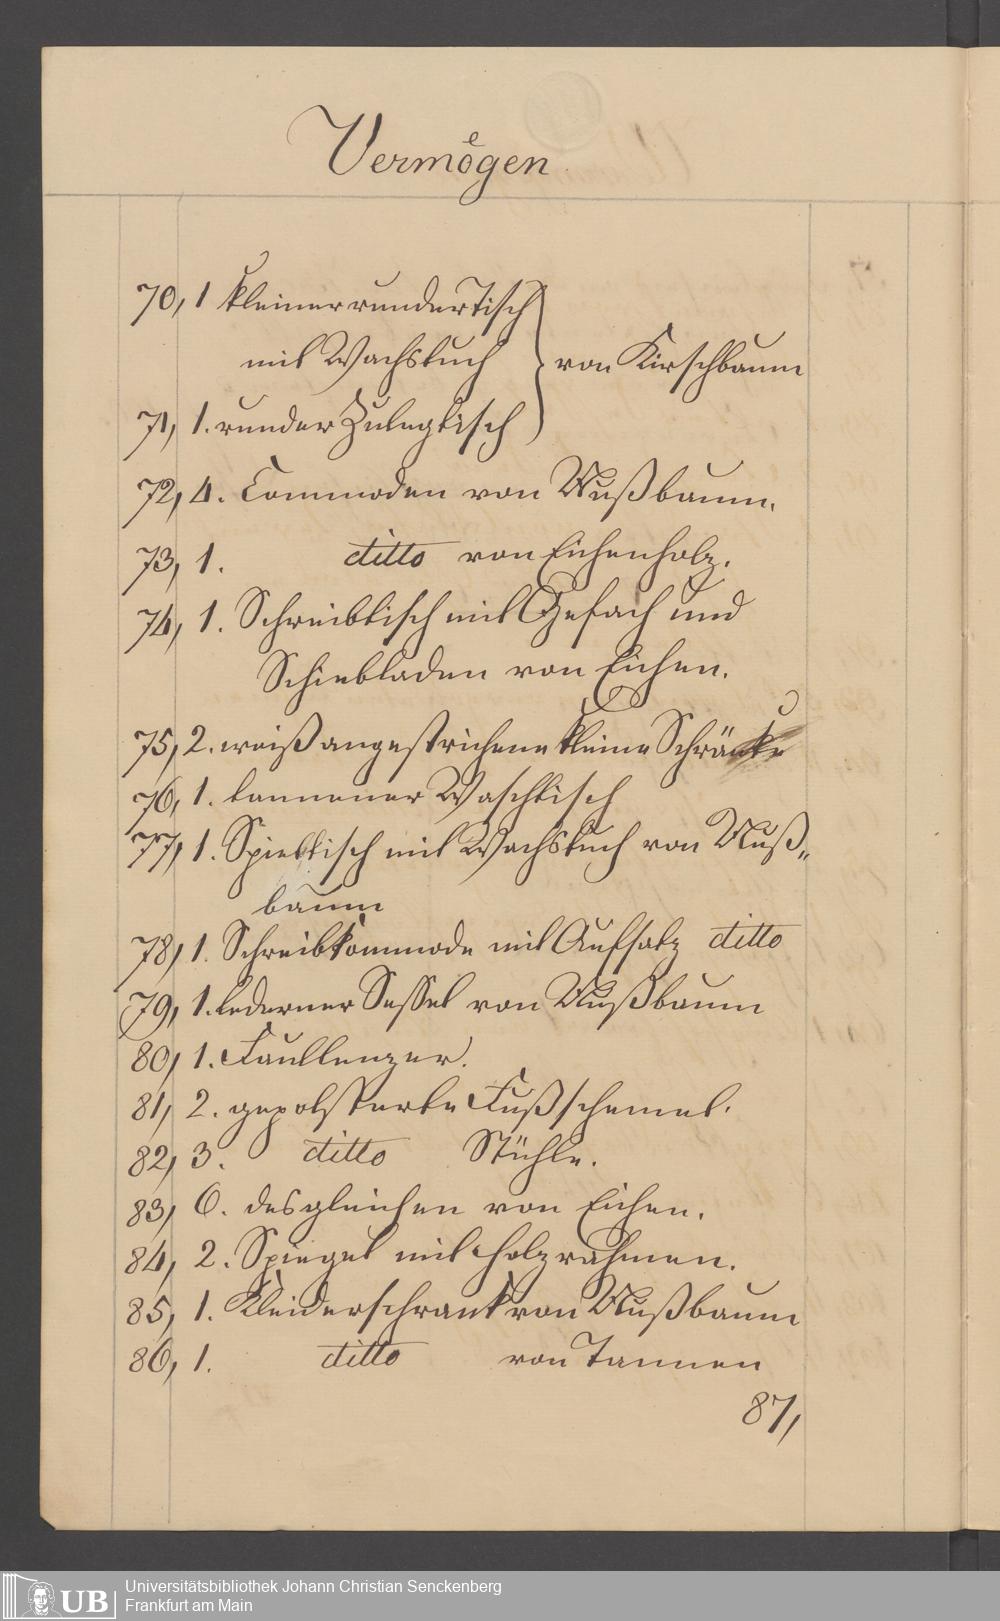 Vermoͤgen
70, 1 kleiner runder Tisch
mit Wachstuch } von Kirschbaum
71, 1. runder Zulegtisch
72, 4. Commoden von Nußbaum.
73, 1. ditto von Eichenholz.
74, 1. Schreibtisch mit Gefach und
Schiebladen von Eichen.
75, 2. weiß angestrichene kleine Schränke
76, 1. tannener Waschtisch
77, 1. Spieltisch mit Wachstuch von Nuß„
baum
78, 1. Schreibkommode mit Aufsatz ditto
79, 1. lederner Sessel von Nußbaum
80, 1. Faullenzer.
81, 2. gepolsterte Fußschemel.
82, 3. ditto Stühle.
83, 6. desgleichen von Eichen.
84, 2. Spiegel mit Holzrahmen.
85, 1. Kleiderschrank von Nußbaum
86, 1. ditto von Tannen
87,
UB Universitätsbibliothek Johann Christian Senckenberg
Frankfurt am Main